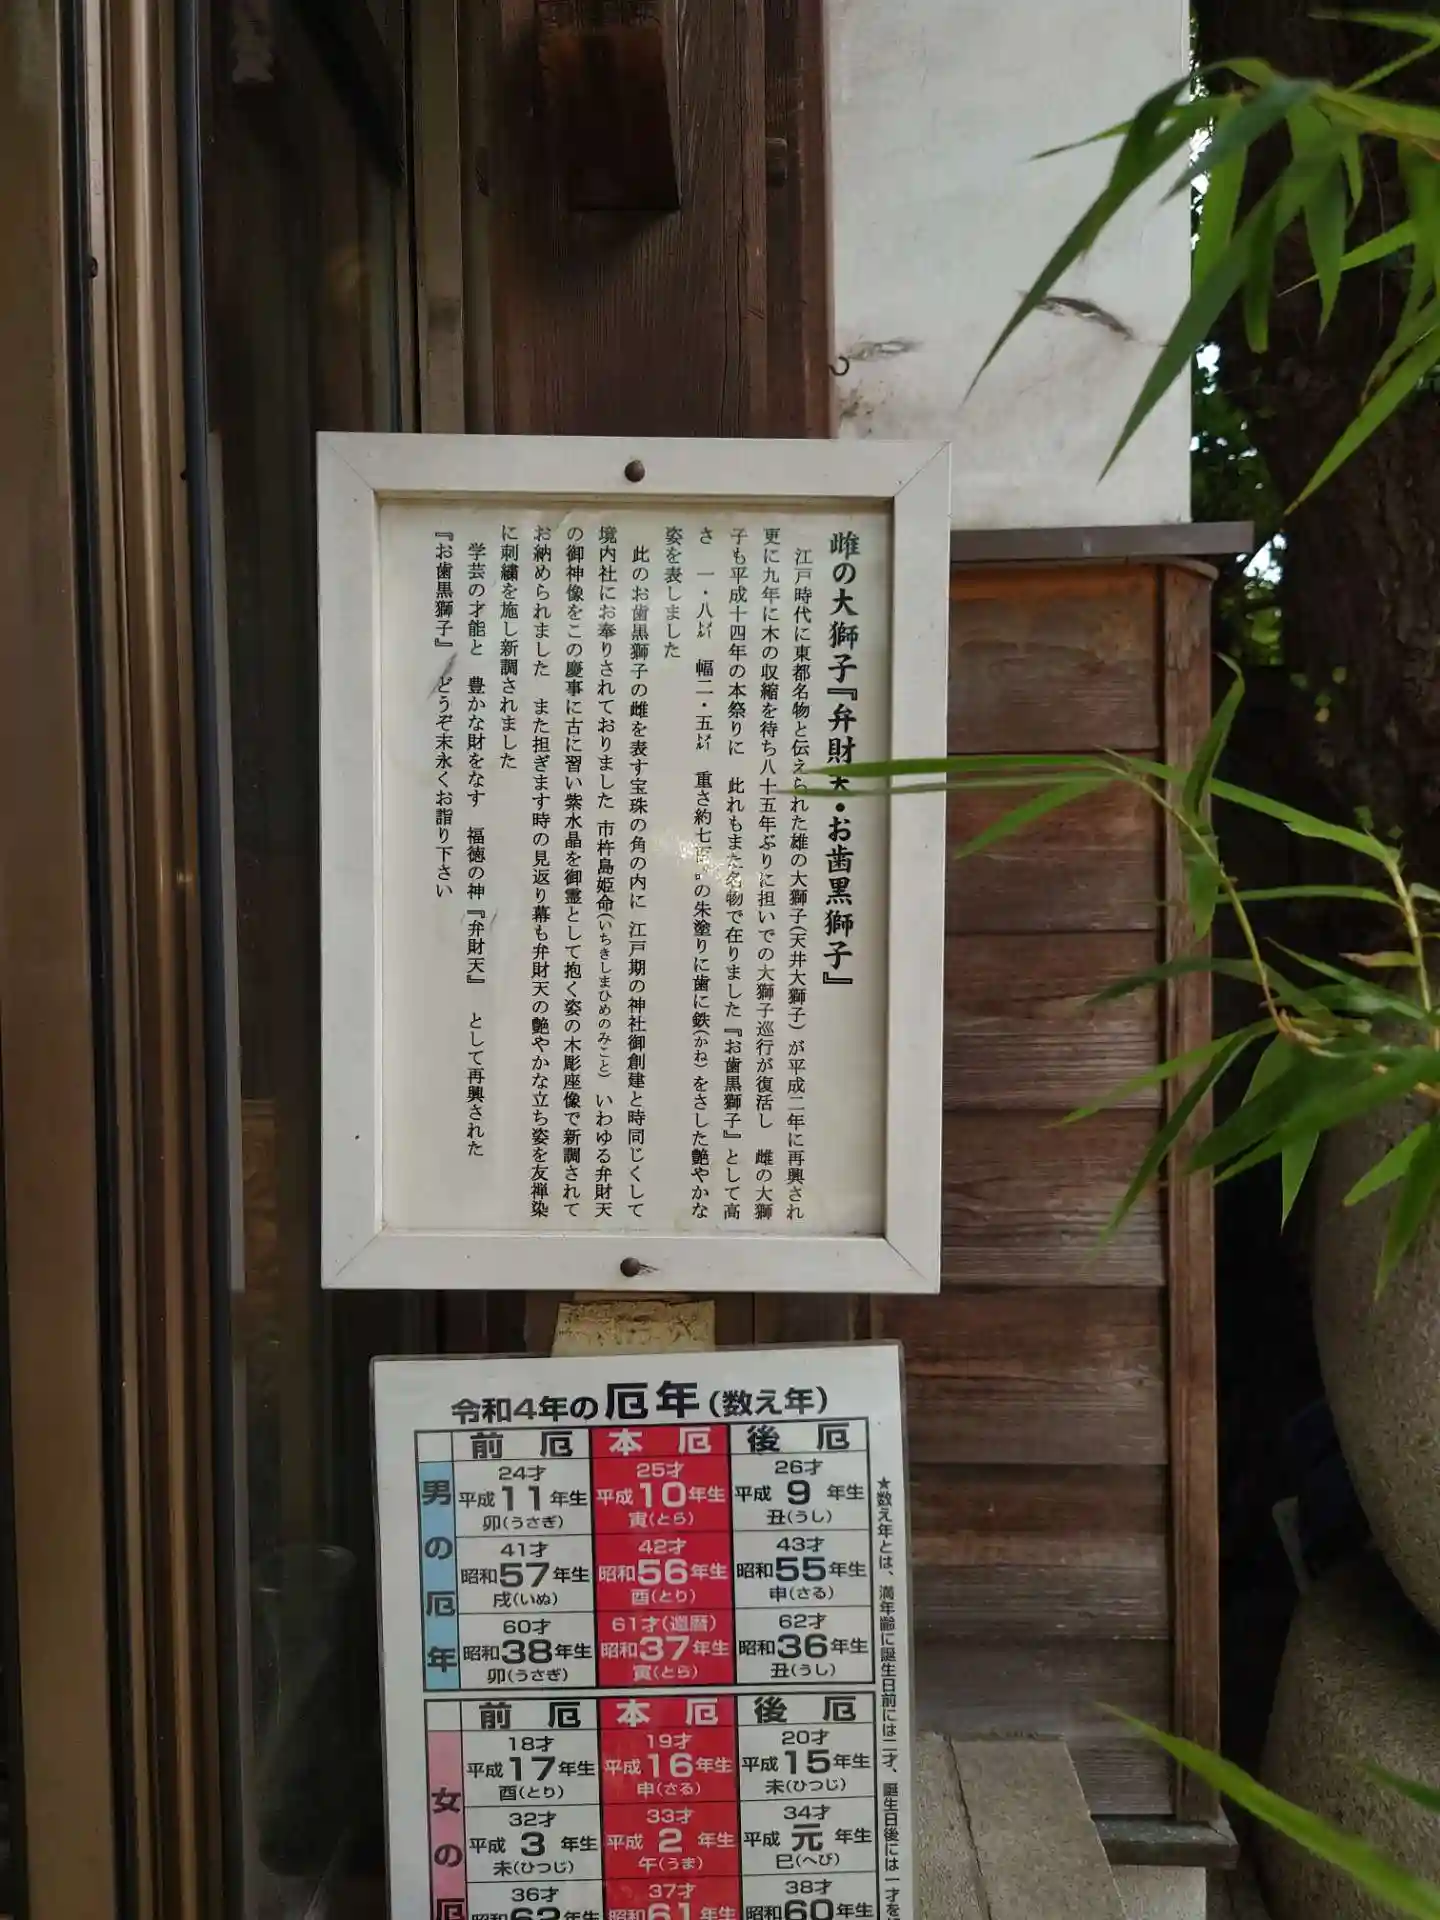 雌の大獅子『弁財天・お歯黒獅子』
江戸時代に東都名物と伝えられた雄の大獅子(天井大獅子)が平成二年に再興され
更に九年に木の収縮を待ち八十五年ぶりに担いでの大獅子巡行が復活し 雌の大獅
子も平成十四年の本祭りに 此れもまた名物で在りました『お歯黒獅子』として高
さ 一・八㍍ 幅二・五㍍ 重さ約七百 の朱塗りに歯に鉄(かね)をさした艶やかな
姿を表しました
此のお歯黒獅子の雌を表す宝珠の角の内に 江戸期の神社御創建と時同じくして
境内社にお奉りされておりました 市杵島姫命(いちきしまひめのみこと) いわゆる弁財天
の御神像をこの慶事に古に習い紫水晶を御霊として抱く姿の木彫座像で新調されて
お納められました また担ぎます時の見返り幕も弁財天の艶やかな立ち姿を友禅染
に刺繍を施し新調されました
学芸の才能と 豊かな財をなす 福徳の神『弁財天』 として再興された
『お歯黒獅子』 どうぞ末永くお詣り下さい
令和4年の厄年(数え年)
前厄 本厄 後厄
男の厄年
24才 25才 26才
平成11年生 平成10年生 平成9年生
卯(うさぎ) 寅(とら) 丑(うし)
41才 42才 43才
昭和57年生 昭和56年生 昭和55年生
戌(いぬ) 酉(とり) 申(さる)
60才 61才(還暦) 62才
昭和38年生 昭和37年生 昭和36年生
卯(うさぎ) 寅(とら) 丑(うし)
前厄 本厄 後厄
女の厄
18才 19才 20才
平成17年生 平成16年生 平成15年生
酉(とり) 申(さる) 未(ひつじ)
32才 33才 34才
平成3年生 平成2年生 平成元年生
未(ひつじ) 午(うま) 巳(へび)
36才 37才 38才
昭和62年生 昭和61年生 昭和60年生
★数え年とは、満年齢に誕生日前には二才、誕生日後には一才を